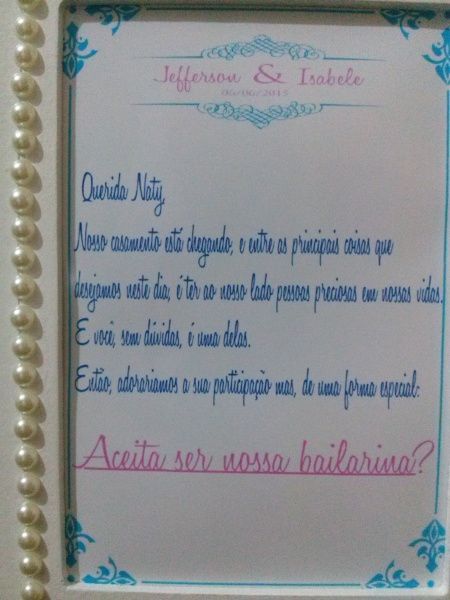 Jefferson & Isabele
06/06/2015
Querida Naty,
Nosso casamento está chegando, e entre as principais coisas que
desejamos neste dia, é ter ao nosso lado pessoas preciosas em nossas vidas.
E você, sem dúvidas, é uma delas.
Então, adorariamos a sua participação mas, de uma forma especial:
Aceita ser nossa bailarina?